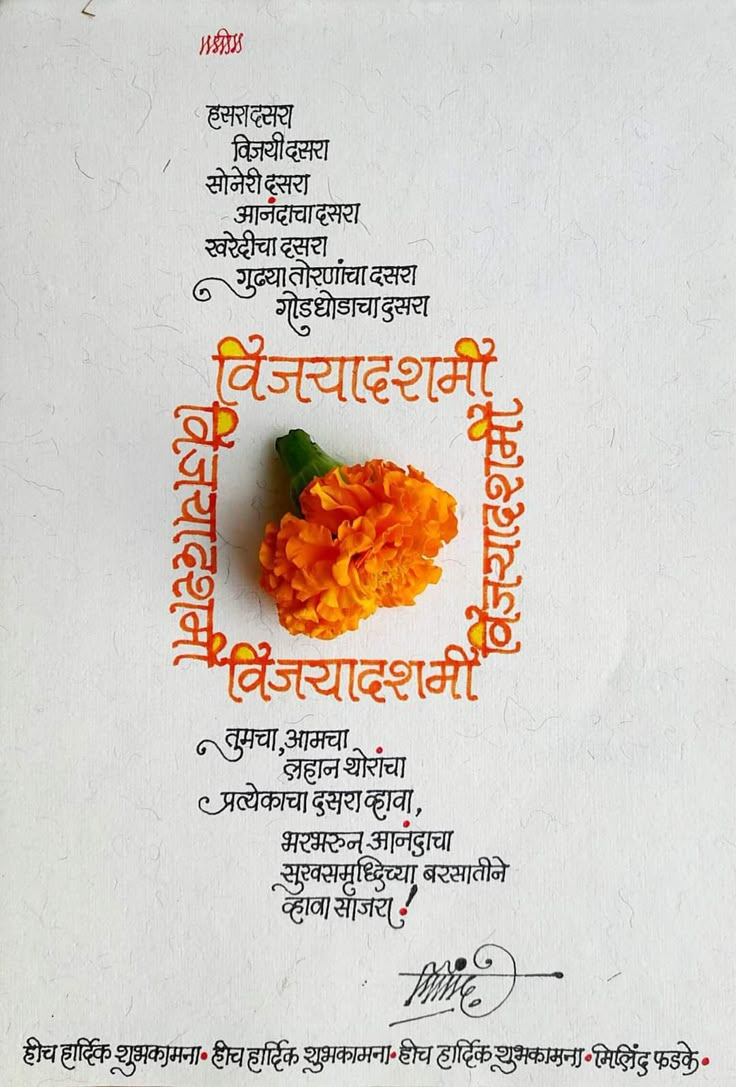 ॥श्री॥
हसरा दसरा
विजयी दसरा
सोनेरी दसरा
आनंदाचा दसरा
खरेदीचा दसरा
गुढया तोरणांचा दसरा
गोडधोडाचा दसरा
विजयादशमी
विजयादशमी
विजयादशमी
विजयादशमी
तुमचा, आमचा
लहान थोरांचा
प्रत्येकाचा दसरा व्हावा,
भरभरुन आनंदाचा
सुखसमृध्दिच्या बरसातीने
व्हावा साजरा!
मिलिंद
हीच हार्दिक शुभकामना • हीच हार्दिक शुभकामना • हीच हार्दिक शुभकामना • मिलिंद फडके •